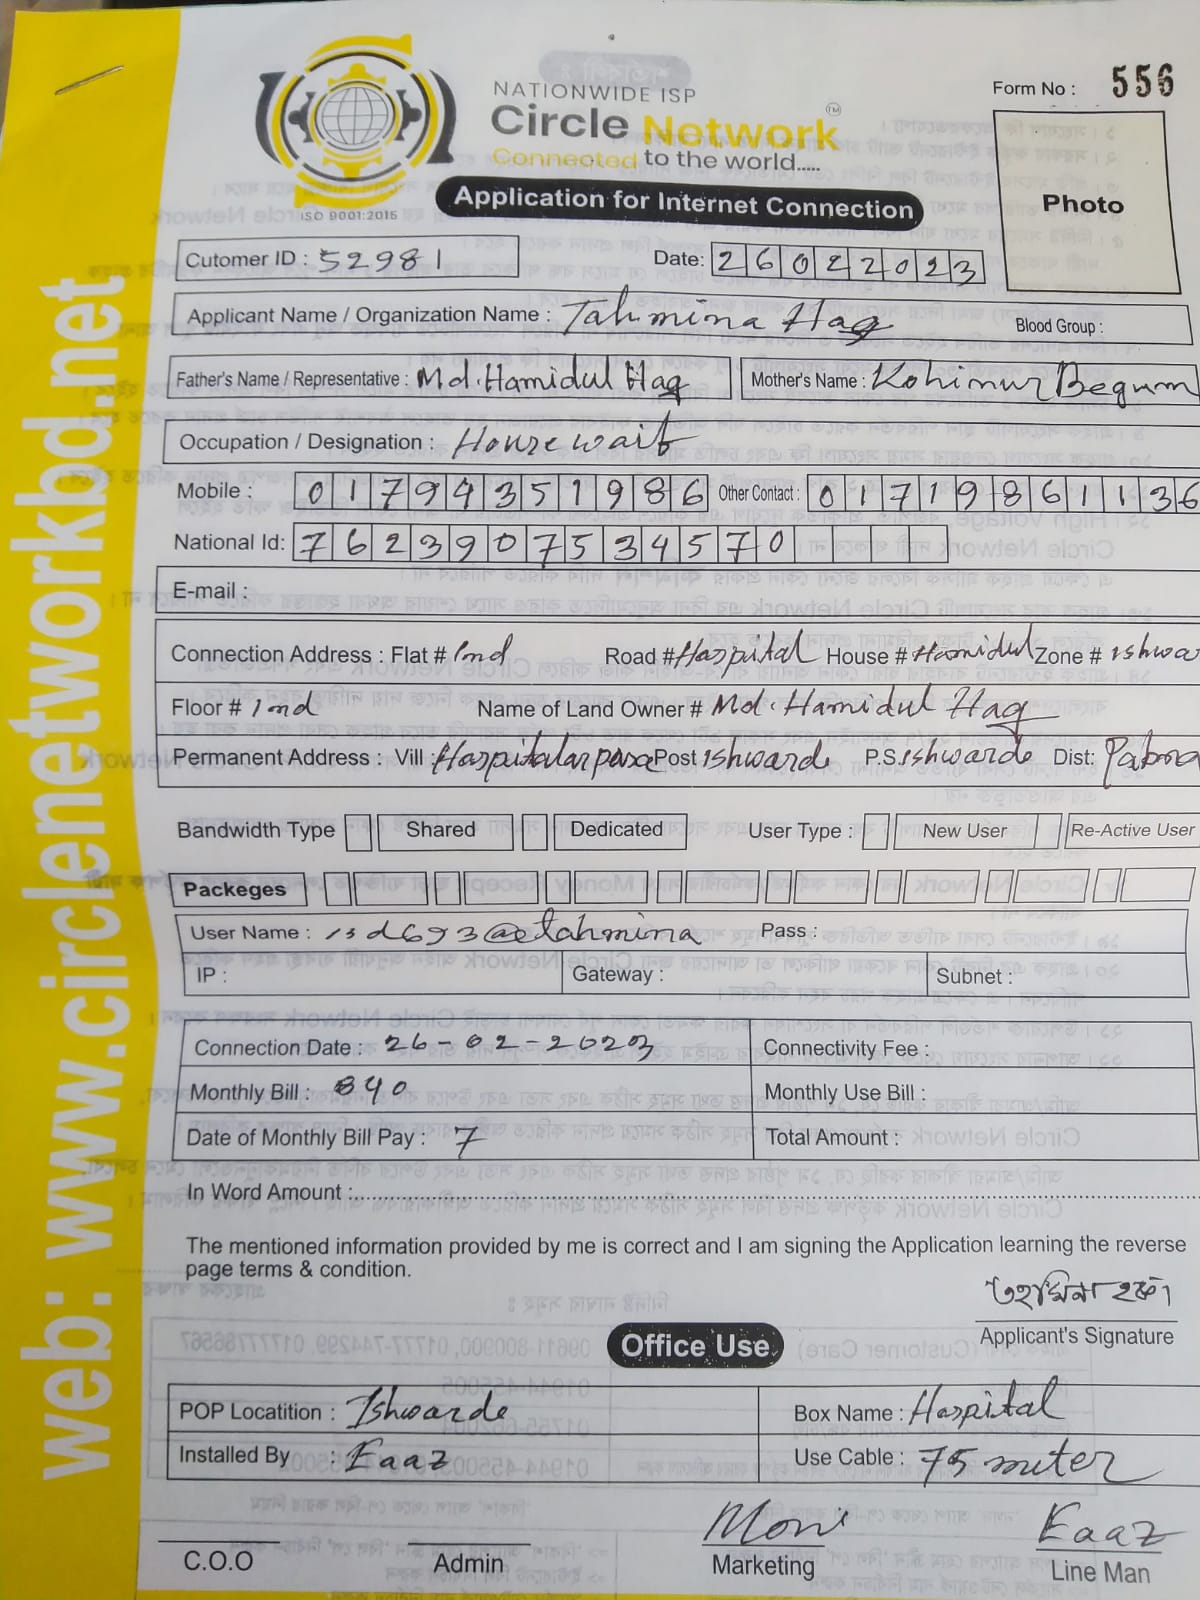 NATIONWIDE ISP
Circle Network TM
Connected to the world.....
ISO 9001:2015
Form No : 556
Photo
Application for Internet Connection
web: www.circlenetworkbd.net
Cutomer ID : 52981 Date: 26022023
Applicant Name / Organization Name : Tahmina Haq Blood Group :
Father's Name / Representative : Md. Hamidul Haq Mother's Name : Kohinur Begum
Occupation / Designation : Housewaif
Mobile : 01794351986 Other Contact : 01719861136
National Id: 7623907534570
E-mail :
Connection Address : Flat # 1nd Road # Haspital House # Hamidul Zone # ishwa
Floor # 1nd Name of Land Owner # Md. Hamidul Haq
Permanent Address : Vill : Haspitalarpara Post ishwarde P.S. ishwarde Dist: Pabna
Bandwidth Type Shared Dedicated User Type : New User Re-Active User
Packeges
User Name : isd693@etahmina Pass :
IP : Gateway : Subnet :
Connection Date : 26-02-2023 Connectivity Fee :
Monthly Bill : 840 Monthly Use Bill :
Date of Monthly Bill Pay : 7 Total Amount :
In Word Amount :
The mentioned information provided by me is correct and I am signing the Application learning the reverse
page terms & condition.
তাহমিনা হক
Applicant's Signature
Office Use
POP Locatition : Ishwarde Box Name : Haspital
Installed By : Eaaz Use Cable : 75 meter
Moni Eaaz
C.O.O Admin Marketing Line Man